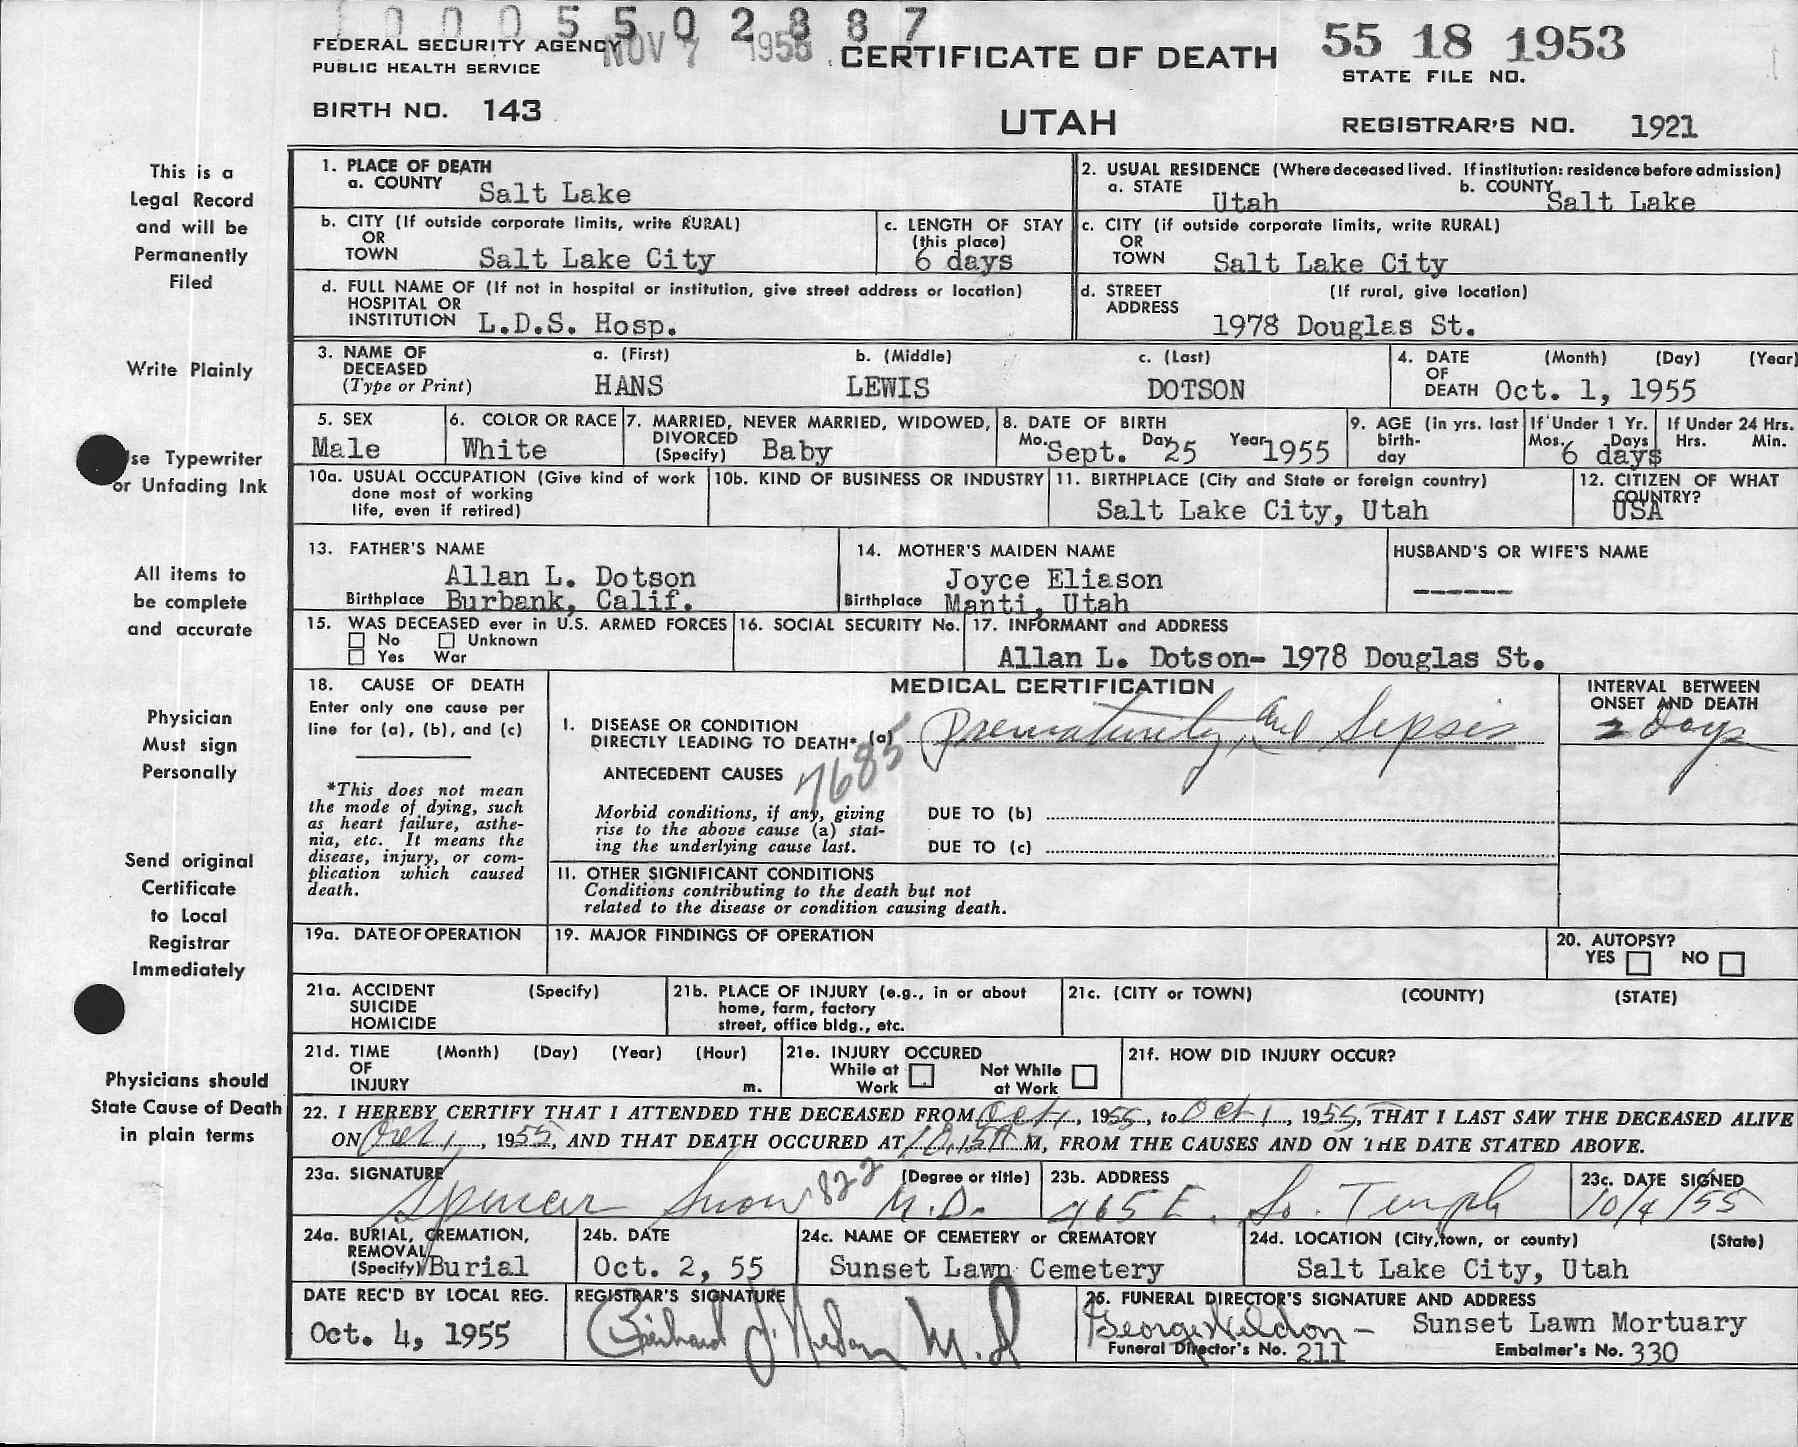 0005502887
FEDERAL SECURITY AGENCY NOV 7 1955 CERTIFICATE OF DEATH 55 18 1953
PUBLIC HEALTH SERVICE STATE FILE NO.
BIRTH NO. 143 UTAH REGISTRAR'S NO. 1921
This is a
Legal Record
and will be
Permanently
Filed
Write Plainly
se Typewriter
or Unfading Ink
All items to
be complete
and accurate
Physician
Must sign
Personally
Send original
Certificate
to Local
Registrar
Immediately
Physicians should
State Cause of Death
in plain terms
1. PLACE OF DEATH
a. COUNTY Salt Lake
2. USUAL RESIDENCE (Where deceased lived. If institution: residence before admission)
a. STATE Utah b. COUNTY Salt Lake
b. CITY (If outside corporate limits, write RURAL)
OR
TOWN Salt Lake City
c. LENGTH OF STAY
(this place)
6 days
c. CITY (if outside corporate limits, write RURAL)
OR
TOWN Salt Lake City
d. FULL NAME OF (If not in hospital or institution, give street address or location)
HOSPITAL OR
INSTITUTION L.D.S. Hosp.
d. STREET (If rural, give location)
ADDRESS
1978 Douglas St.
3. NAME OF DECEASED (Type or Print)
a. (First) b. (Middle) c. (Last)
HANS LEWIS DOTSON
4. DATE (Month) (Day) (Year)
OF
DEATH Oct. 1, 1955
5. SEX
Male
6. COLOR OR RACE
White
7. MARRIED, NEVER MARRIED, WIDOWED,
DIVORCED
(Specify) Baby
8. DATE OF BIRTH
Mo. Sept. Day 25 Year 1955
9. AGE (in yrs. last
birth-
day
If Under 1 Yr.
Mos. Days
6 days
If Under 24 Hrs.
Hrs. Min.
10a. USUAL OCCUPATION (Give kind of work
done most of working
life, even if retired)
10b. KIND OF BUSINESS OR INDUSTRY
11. BIRTHPLACE (City and State or foreign country)
Salt Lake City, Utah
12. CITIZEN OF WHAT
COUNTRY?
USA
13. FATHER'S NAME
Allan L. Dotson
Birthplace Burbank, Calif.
14. MOTHER'S MAIDEN NAME
Joyce Eliason
Birthplace Manti, Utah
HUSBAND'S OR WIFE'S NAME
------
15. WAS DECEASED ever in U.S. ARMED FORCES
No Unknown
Yes War
16. SOCIAL SECURITY No.
17. INFORMANT and ADDRESS
Allan L. Dotson- 1978 Douglas St.
18. CAUSE OF DEATH
Enter only one cause per
line for (a), (b), and (c)
*This does not mean
the mode of dying, such
as heart failure, asthe-
nia, etc. It means the
disease, injury, or com-
plication which caused
death.
MEDICAL CERTIFICATION
I. DISEASE OR CONDITION
DIRECTLY LEADING TO DEATH* (a) Prematurity, and Sepsis
ANTECEDENT CAUSES 7685
Morbid conditions, if any, giving
rise to the above cause (a) stat-
ing the underlying cause last.
DUE TO (b)
DUE TO (c)
INTERVAL BETWEEN
ONSET AND DEATH
2 Days
II. OTHER SIGNIFICANT CONDITIONS
Conditions contributing to the death but not
related to the disease or condition causing death.
19a. DATE OF OPERATION
19. MAJOR FINDINGS OF OPERATION
20. AUTOPSY?
YES NO
21a. ACCIDENT (Specify)
SUICIDE
HOMICIDE
21b. PLACE OF INJURY (e.g., in or about
home, farm, factory
street, office bldg., etc.
21c. (CITY or TOWN) (COUNTY) (STATE)
21d. TIME (Month) (Day) (Year) (Hour)
OF
INJURY m.
21e. INJURY OCCURED
While at Work Not While at Work
21f. HOW DID INJURY OCCUR?
22. I HEREBY CERTIFY THAT I ATTENDED THE DECEASED FROM Oct 1, 1955, to Oct 1, 1955, THAT I LAST SAW THE DECEASED ALIVE
ON Oct 1, 1955, AND THAT DEATH OCCURED AT M, FROM THE CAUSES AND ON THE DATE STATED ABOVE.
23a. SIGNATURE (Degree or title)
Spencer Snow 822 M.D.
23b. ADDRESS
465 E. So. Temple
23c. DATE SIGNED
10/4/55
24a. BURIAL, CREMATION,
REMOVAL
(Specify) Burial
24b. DATE
Oct. 2, 55
24c. NAME OF CEMETERY or CREMATORY
Sunset Lawn Cemetery
24d. LOCATION (City, town, or county) (State)
Salt Lake City, Utah
DATE REC'D BY LOCAL REG.
Oct. 4, 1955
REGISTRAR'S SIGNATURE
M.D.
25. FUNERAL DIRECTOR'S SIGNATURE AND ADDRESS
George Weldon - Sunset Lawn Mortuary
Funeral Director's No. 211 Embalmer's No. 330